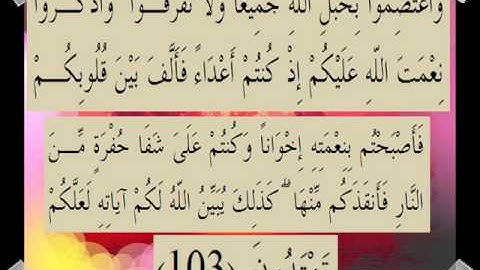 وَاعْتَصِمُوا بِحَبْلِ اللَّهِ جَمِيعًا وَلَا تَفَرَّقُوا وَاذْكُرُوا
نِعْمَتَ اللَّهِ عَلَيْكُمْ إِذْ كُنتُمْ أَعْدَاءً فَأَلَّفَ بَيْنَ قُلُوبِكُمْ
فَأَصْبَحْتُم بِنِعْمَتِهِ إِخْوَانًا وَكُنتُمْ عَلَىَ شَفَا حُفْرَةٍ مِّنَ
النَّارِ فَأَنقَذَكُم مِّنْهَا ۗ كَذَلِكَ يُبَيِّنُ اللَّهُ لَكُمْ آيَاتِهِ لَعَلَّكُمْ
تَهْتَدُونَ (103)